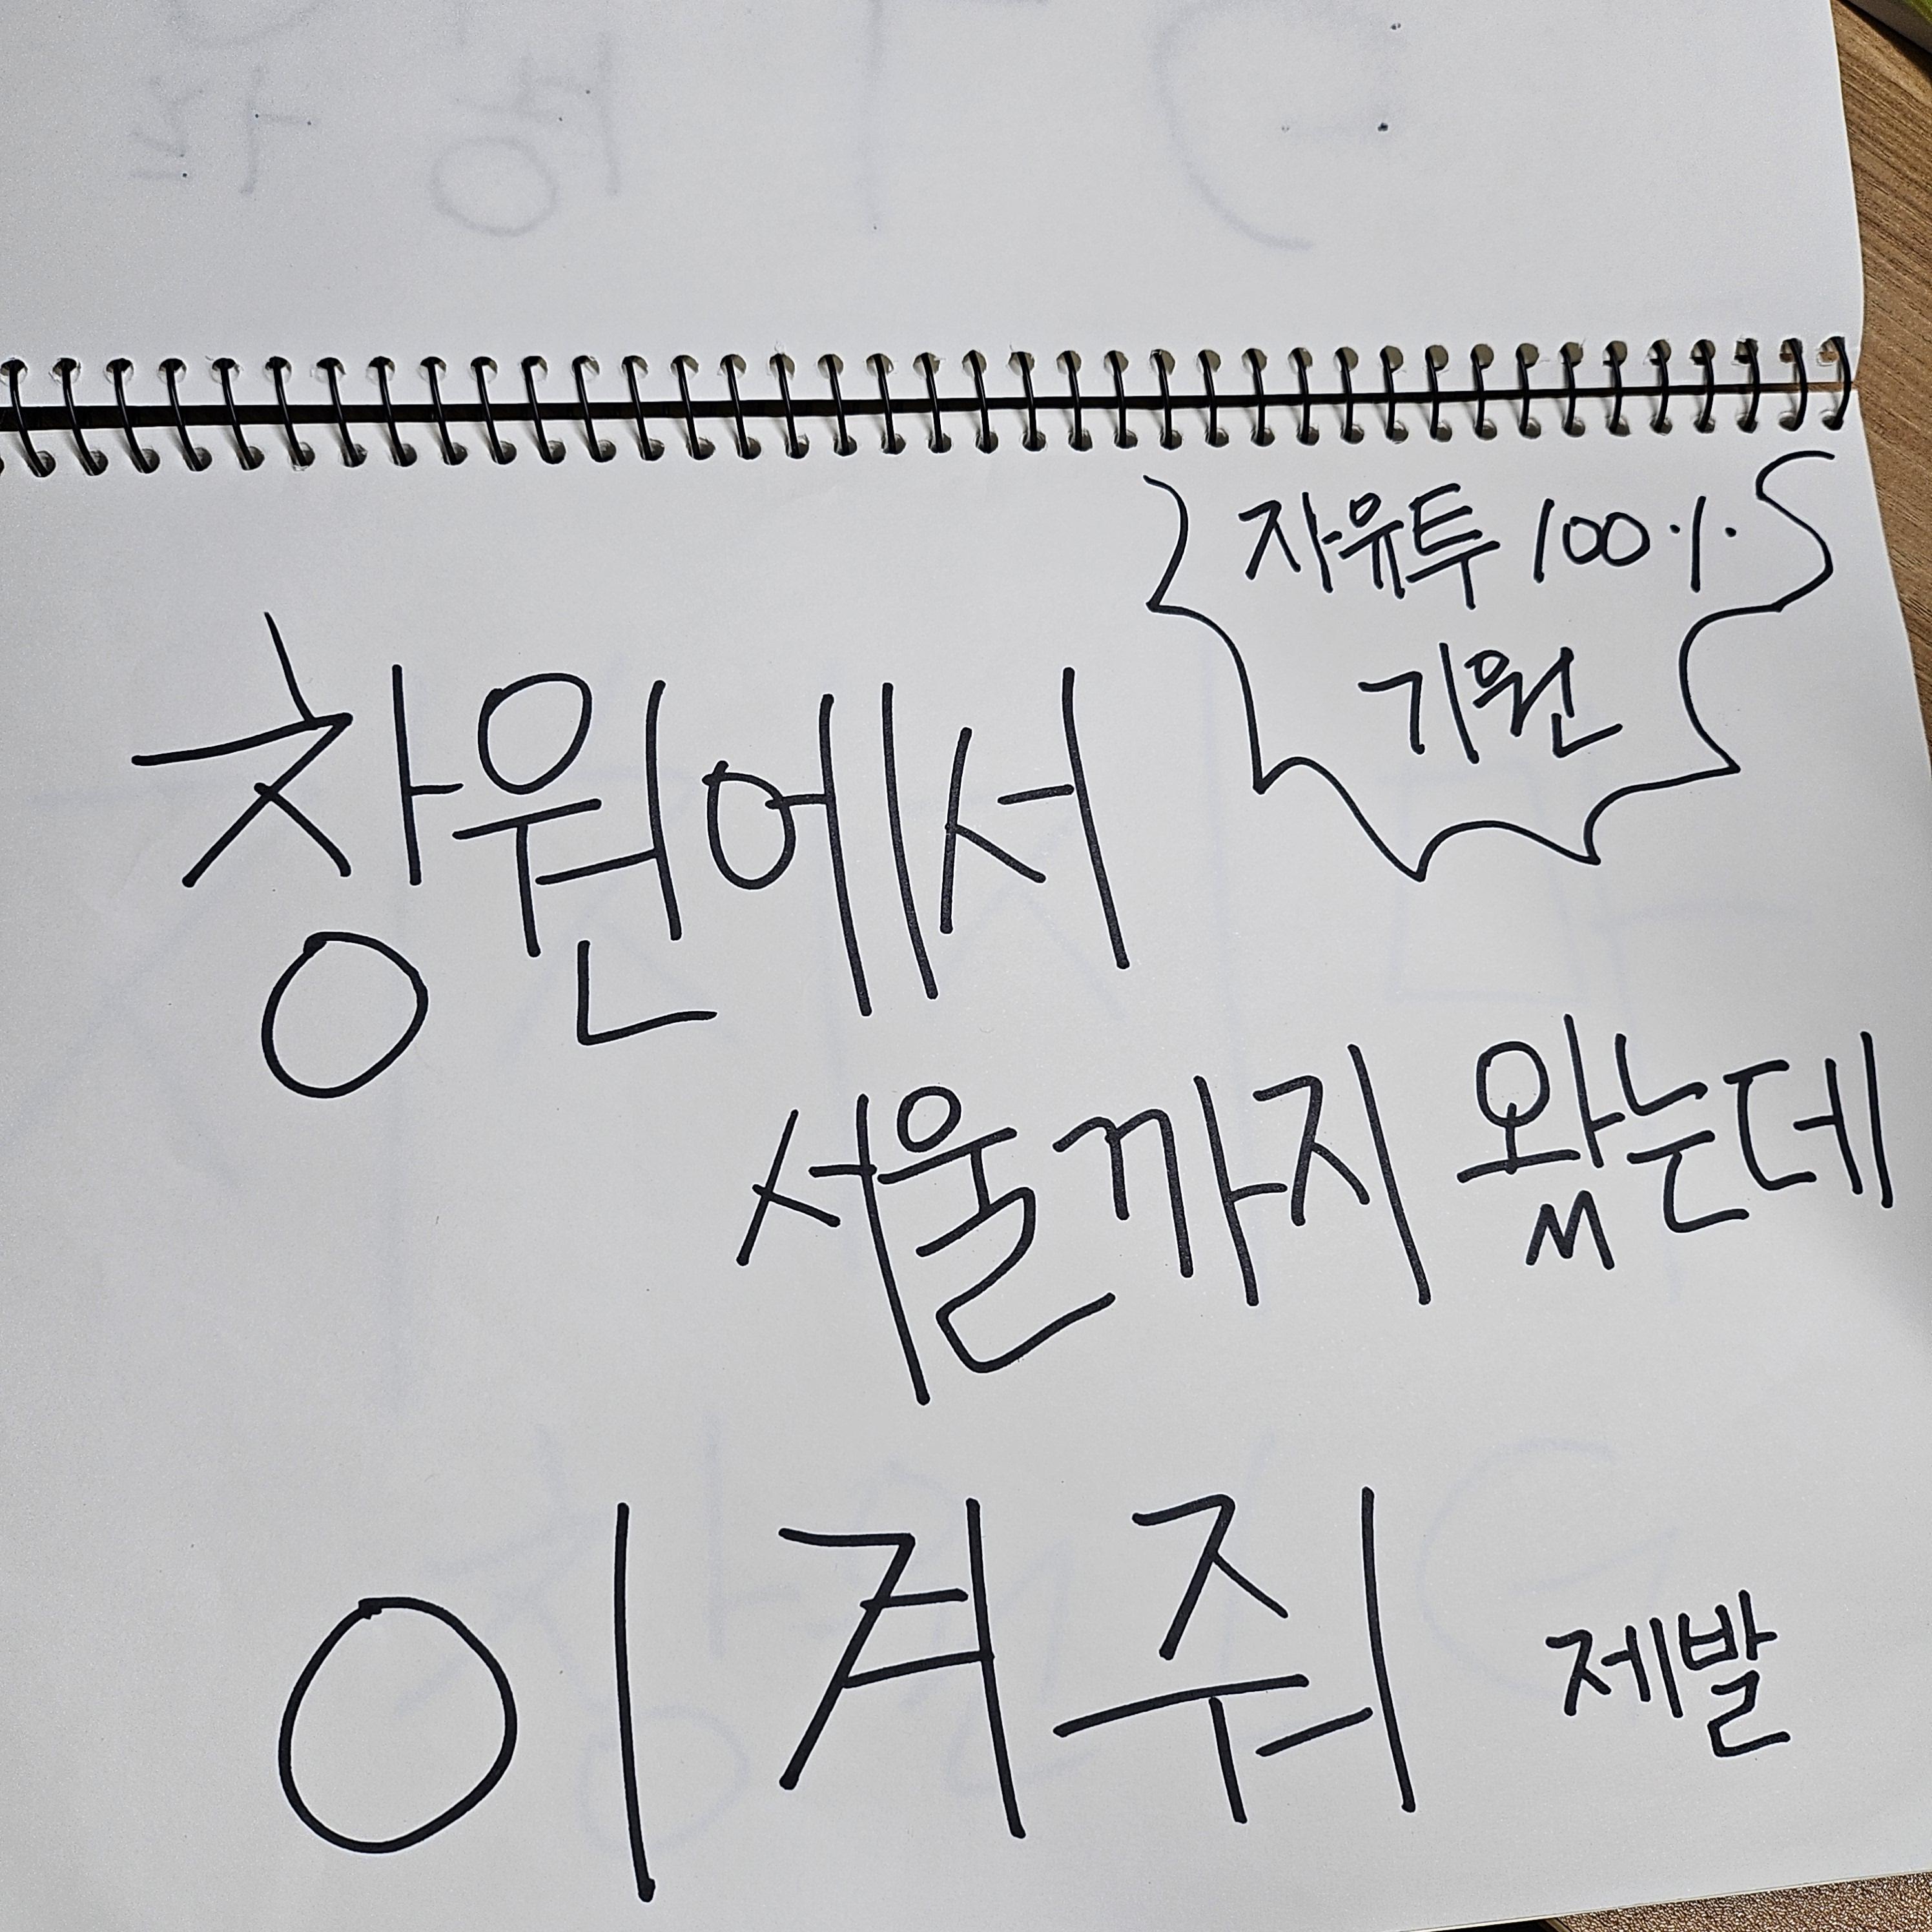 자유투 100%
기원
창원에서
서울까지 왔는데
이겨줘 제발